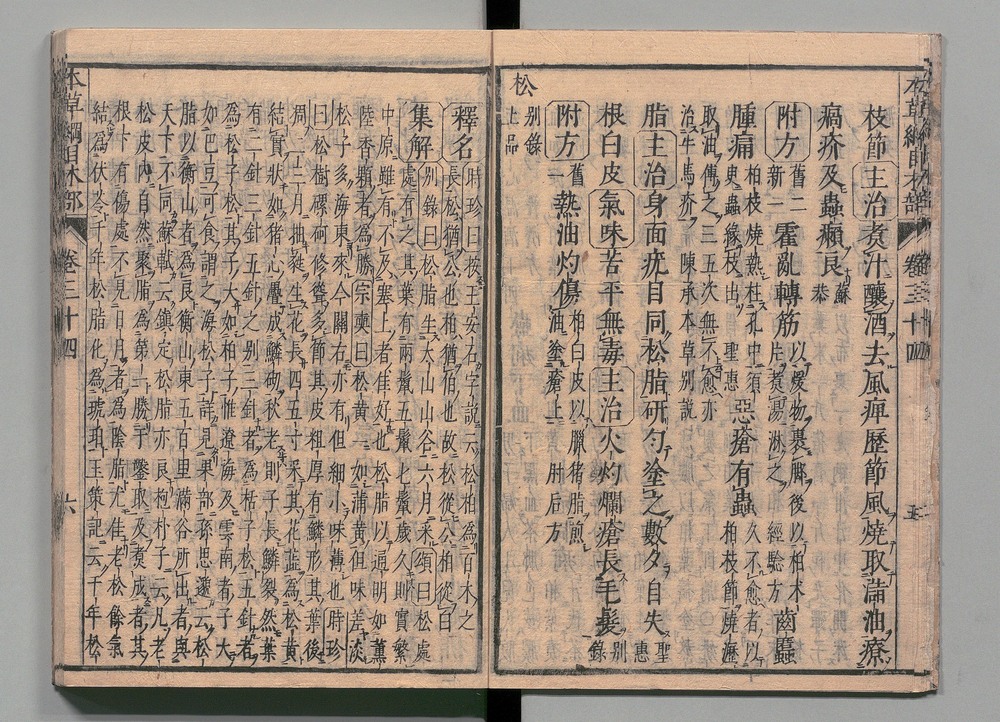 本草綱目木部 卷三十四 五
枝節主治煮汁釀酒去風痺歷節風燒取𣿉油療
瘑疥及蟲癩良蘇恭
附方舊二新一霍亂轉筋以煖物裹脚後以柏木片煮湯淋之經驗方齒䘌
腫痛柏枝燒熱柱孔中須臾蟲緣枝出聖惠惡瘡有蟲久不愈者以柏枝節燒瀝
取油傅之三五次無不愈亦治牛馬疥陳承本草別說
脂主治身面疣目同松脂研勻塗之數夕自失聖惠
根白皮氣味苦平無毒主治火灼爛瘡長毛髮別錄
附方舊一熱油灼傷柏白皮以臘猪脂煎油塗瘡上肘后方
松別錄上品
釋名時珍曰按王安石字說云松柏為百木之
長松猶公也柏猶伯也故松從公柏從白
集解別錄曰松脂生太山山谷六月采頌曰松處
處有之其葉有兩鬣五鬣七鬣歲久則實繁
中原雖有不及塞上者佳好也松脂以通明如薫
陸香顆者為勝宗奭曰松黃一如蒲黃但味差淡
松子多海東來今關右亦有但細小味薄也時珍
曰松樹磥砢修聳多節其皮粗厚有鱗形其葉後
凋二三月抽蕤生花長四五寸采其花蕊為松黃
結實狀如猪心疊成鱗砌秋老則子長鱗裂然葉
有二針三針五針之別三針者為栝子松五針者
為松子松其子大如柏子惟遼海及雲南者子大
如巴豆可食謂之海松子詳見果部孫思邈云松
脂以衡山者為良衡山東五百里滿谷所出者與
天下不同蘇軾云鎮定松脂亦良抱朴子云凡老
松皮內自然聚脂為第一勝于鑿取及煮成者其
根下有傷處不見日月者為陰脂尤佳老松餘氣
結為伏苓千年松脂化為琥珀玉策記云千年松
本草綱目木部 卷三十四 六